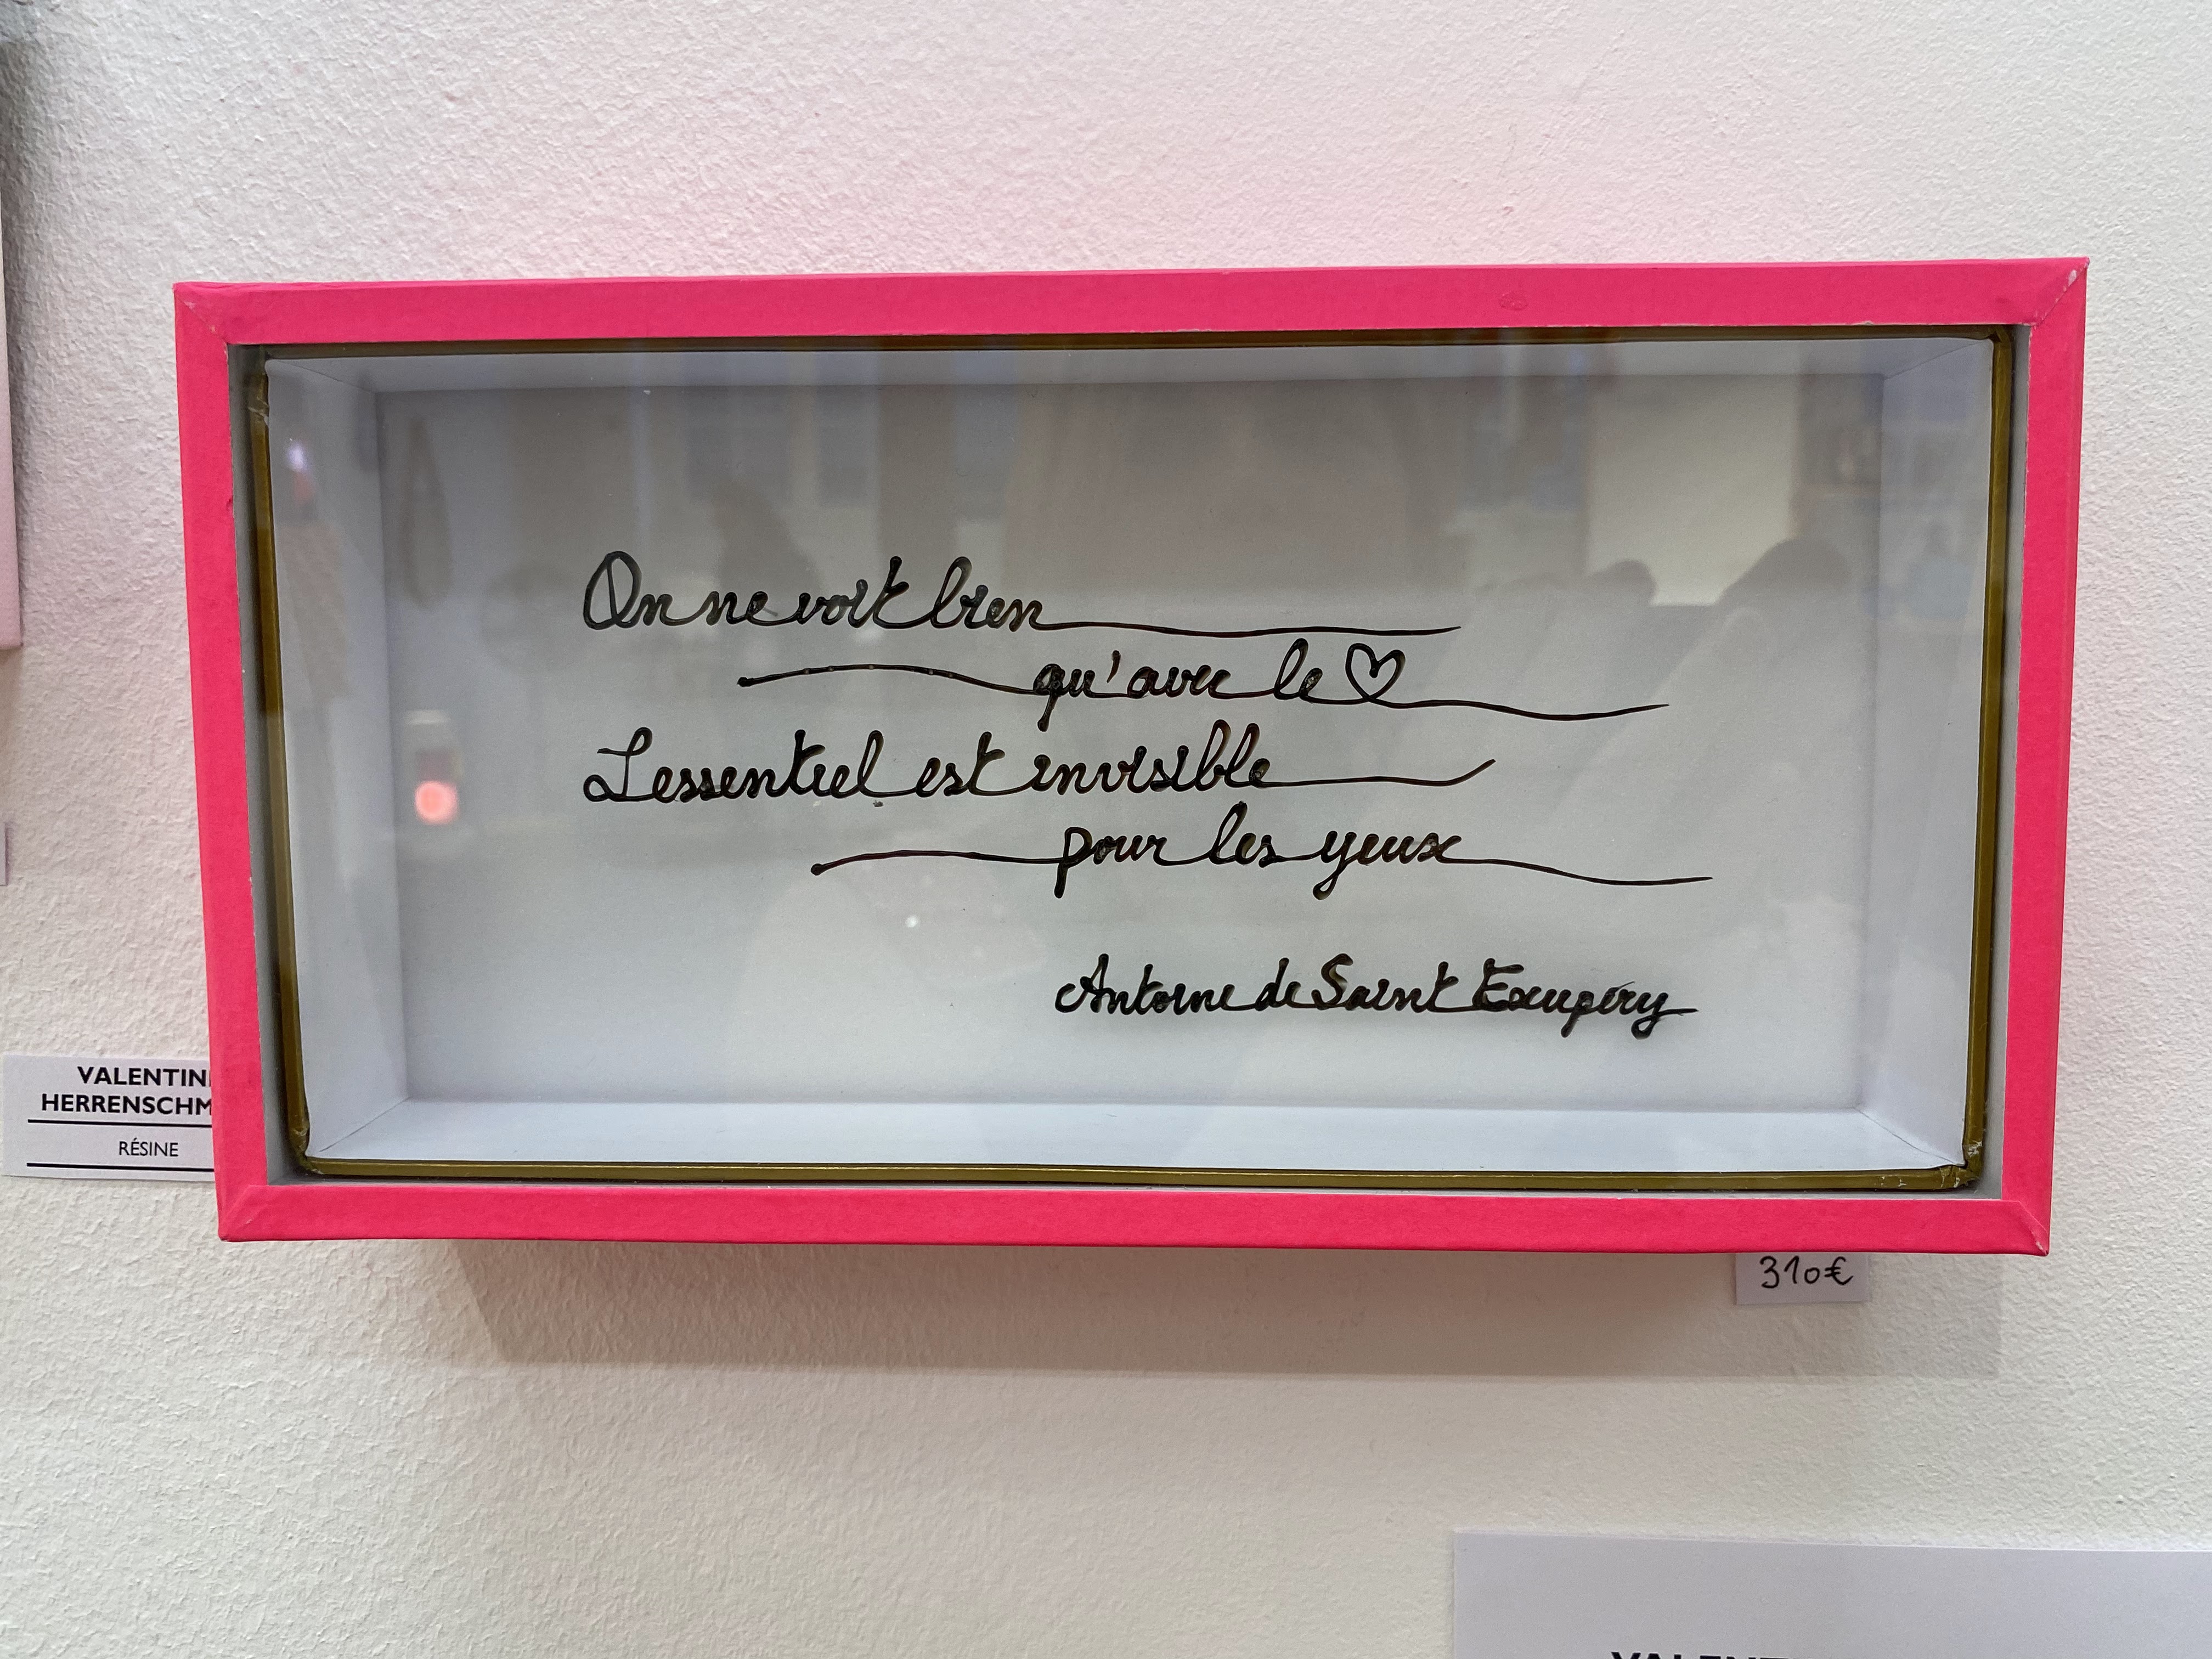 On ne voit bien
qu'avec le ♡
Lessentiel est invisible
pour les yeux
Antoine de Saint Exupéry
VALENTIN
HERRENSCHM
RÉSINE
310€